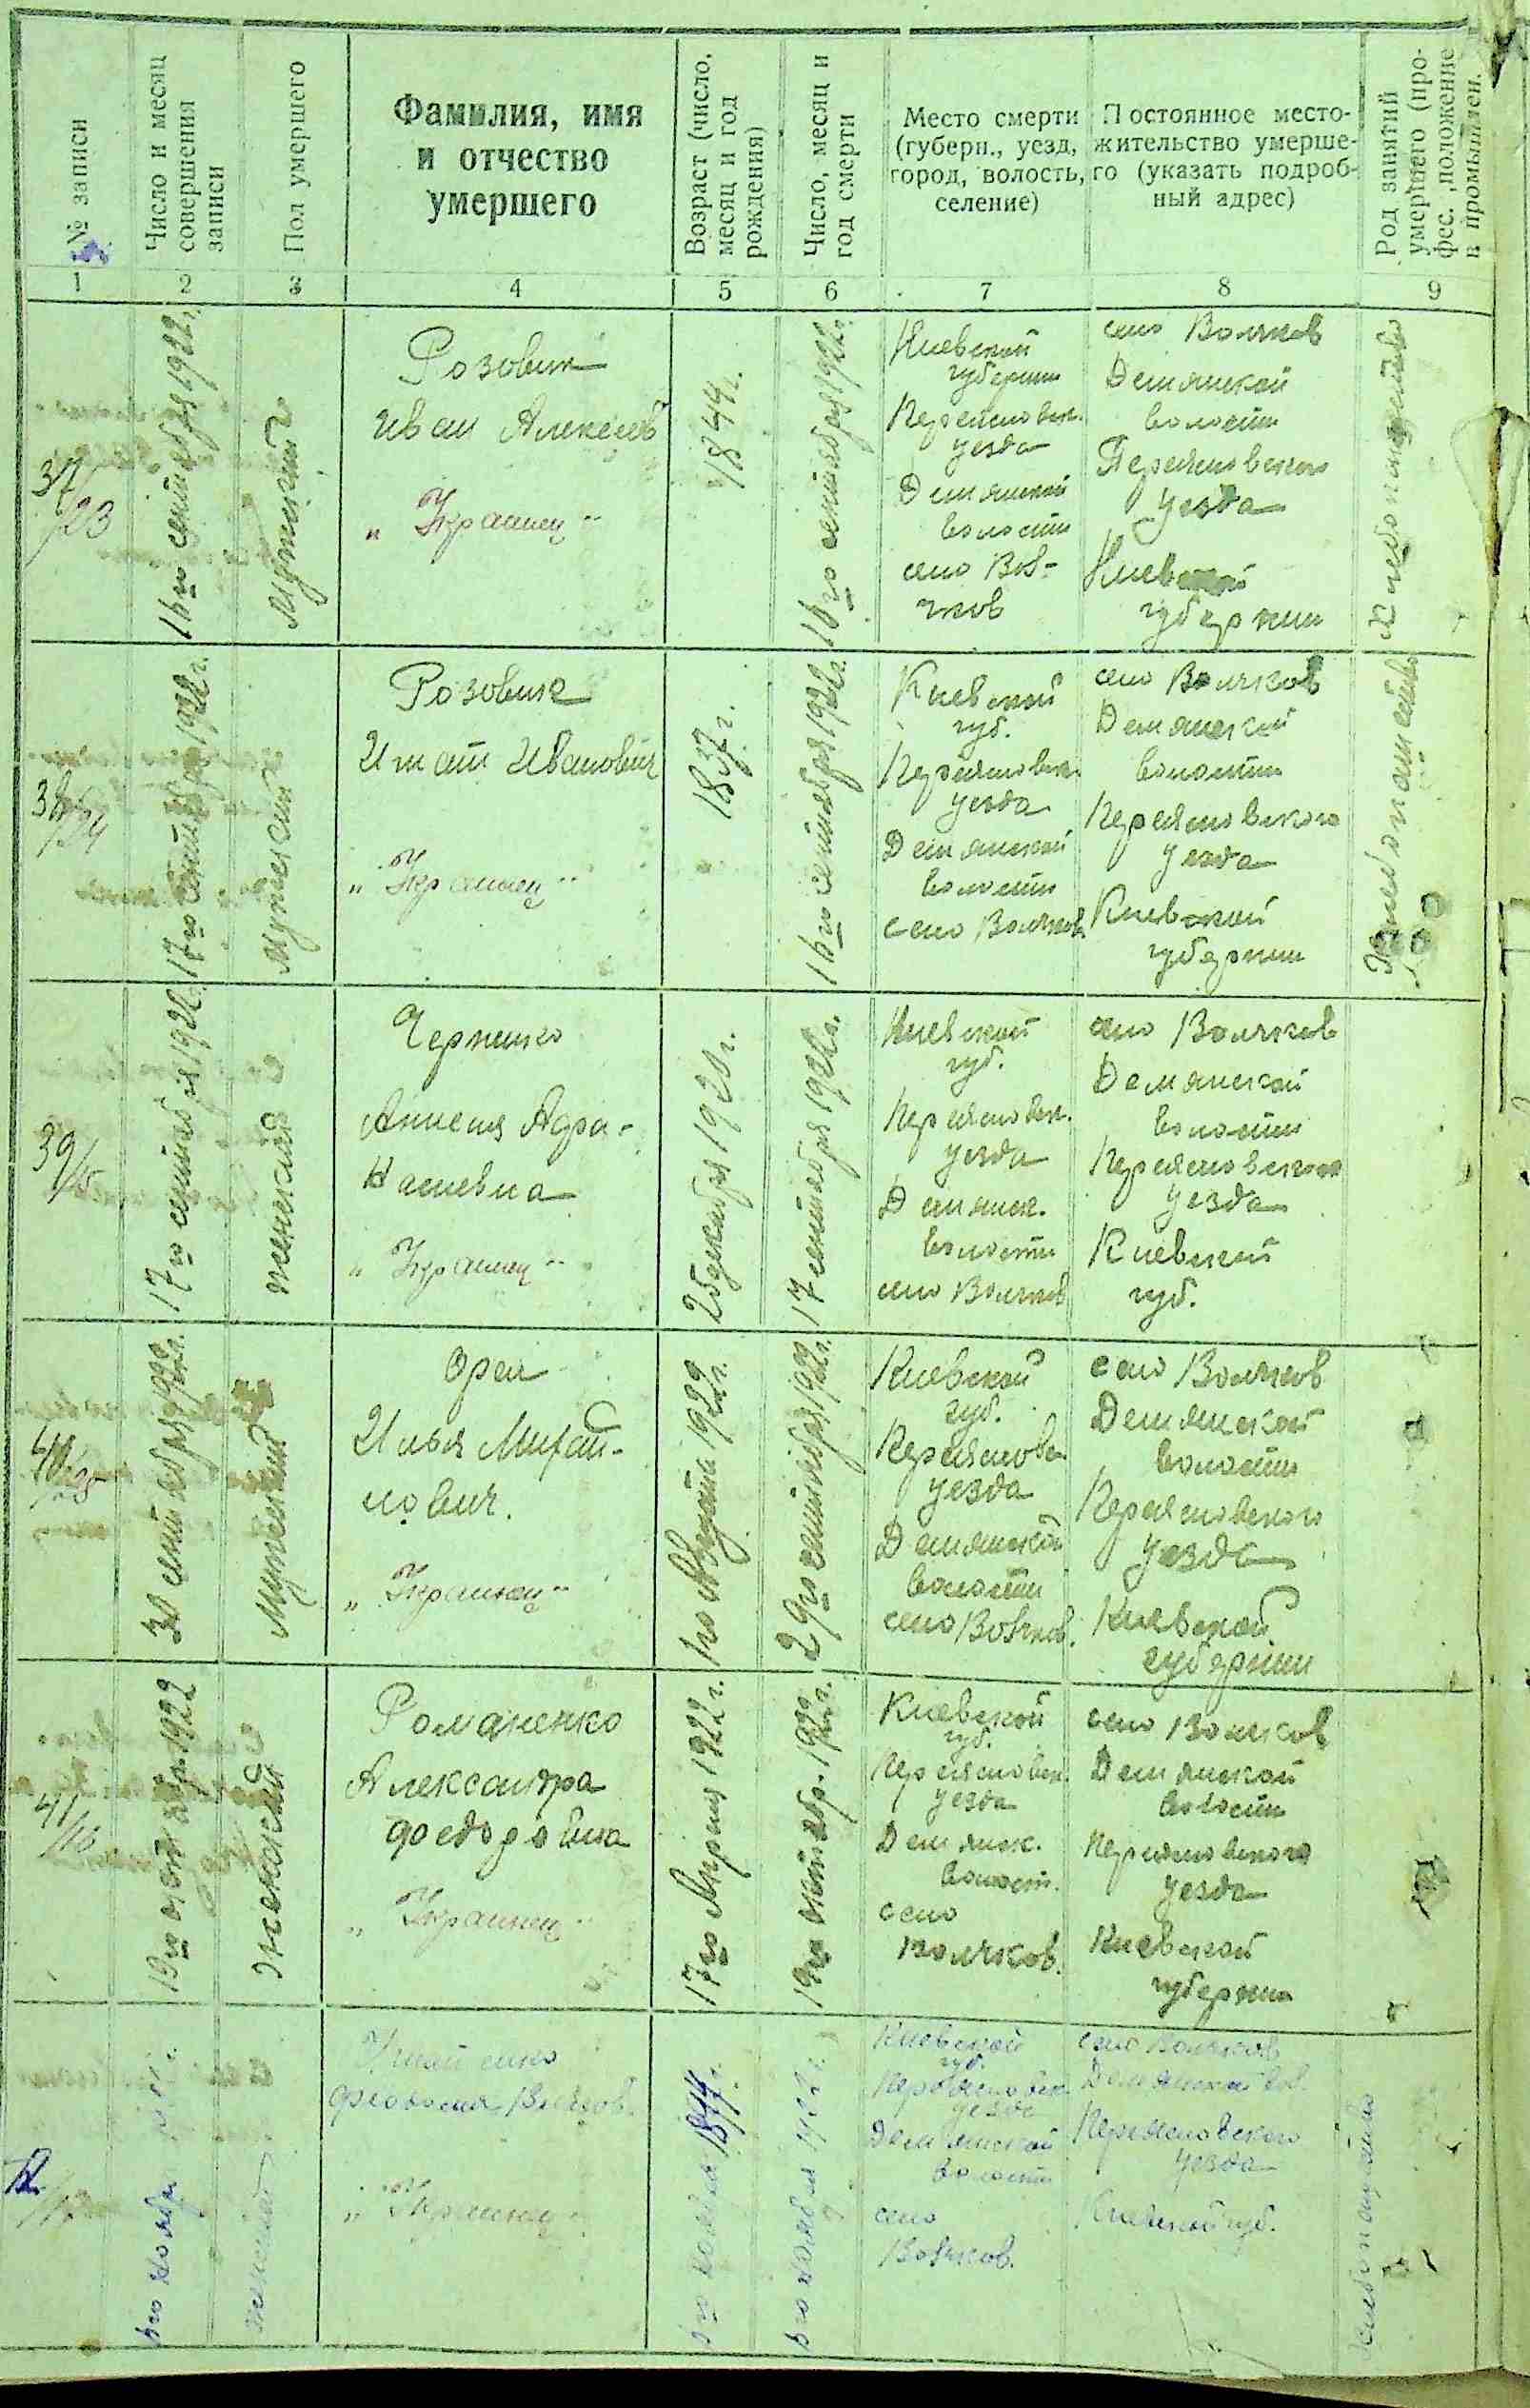 № записи
Число и месяц
совершения
записи
Пол умершего
Фамилия, имя
и отчество
умершего
Возраст (число,
месяц и год
рождения)
Число, месяц и
год смерти
Место смерти
(губерн., уезд,
город, волость,
селение)
Постоянное место-
жительство умерше-
го (указать подроб-
ный адрес)
Род занятий
умершего (про-
фес., положение
в промышлен.
1 2 3 4 5 6 7 8 9
37/23
16го сентября 1922г.
Мужский
Розовик
Иван Алексеев
„ Украинец "
1844г.
16го сентября 1922г.
Киевской
губернии
Переясловск.
уезда
Демянской
волости
село Вов-
чков
село Волчков
Демянской
волости
Переясловского
уезда
Киевской
губернии
Хлебопашество
38/24
17го сентября 1922г.
Мужский
Розовик
Игнат Иванович
„ Украинец "
1837г.
16го сентября 1922г.
Киевской
губ.
Переясловск.
уезда
Демянской
волости
село Волчков
село Волчков
Демянской
волости
Переясловского
уезда
Киевской
губернии
Хлебопашество
39/15
17го сентября 1922г.
женский
Черненко
Афа-
насиевна
„ Украинец "
26 декабря 1920г.
17 сентября 1922г.
Киевской
губ.
Переясловск.
уезда
Демянск.
волости
село Волчков
село Волчков
Демянской
волости
Переясловского
уезда
Киевской
губ.
40/25
30 сентября 1922г.
Мужеский
Орел
Илья Михай-
лович.
„ Украинец "
1го Августа 1922г.
29го сентября 1922г.
Киевской
губ.
Переясловск
уезда
Демянской
волости
село Вовчков.
село Волчков
Демянской
волости
Переясловского
уезда
Киевской
губернии
41/16
19го октябр. 1922
Женский
Романенко
Александра
Феодоровна
„ Украинец "
17го Апреля 1922г.
19го октябр. 1922г.
Киевской
губ.
Переясловск.
уезда
Демянск.
волост.
село
Волчков.
село Волчков
Демянской
волости
Переясловского
уезда
Киевской
губернии
/17
ноябр.
женский
„ Украинец "
ноября 1877г.
ноября
Киевской
губ.
Переясловск
уезда
Демянской
волости
село
Вовчков.
село Волчков
Демянской вол.
Переясловского
уезда
Киевской губ.
Хлебопашество